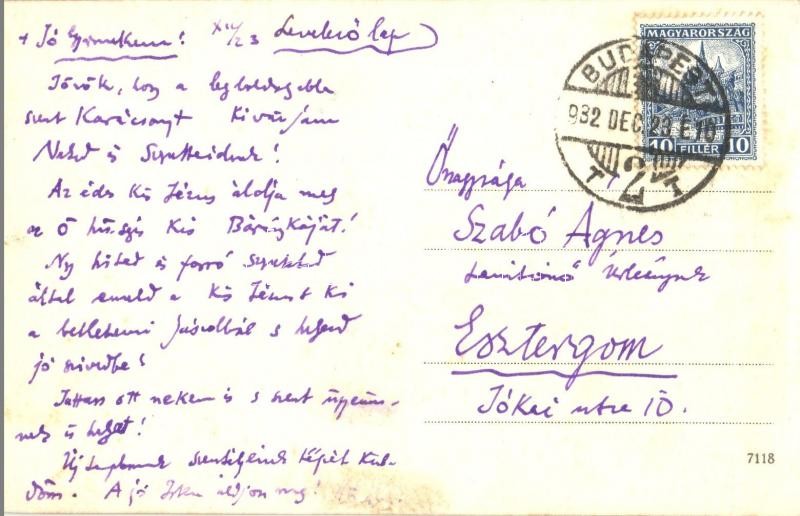 + Jó Gyermekem! XII/23 Levelező lap
hogy a legboldogabb
szent Karácsonyt kívánjam
Neked és Szeretteidnek!
Az édes Kis Jézus áldja meg
az Ő hűséges Kis Báránykáját!
hited és forró szereteted
által emeld a Kis Jézust ki
a betlehemi jászolból s helyezd
jó szívedbe!
ott nekem is s szent ügyeim-
nek is helyet!
Új templomunk szentélyének képét kül-
döm. A jó Isten áldjon meg!
MAGYARORSZÁG
10 FILLÉR 10
BUDAPEST
932 DEC. 23
Őnagysága
Szabó Ágnes
úrleánynak
Esztergom
Jókai utca 10.
7118